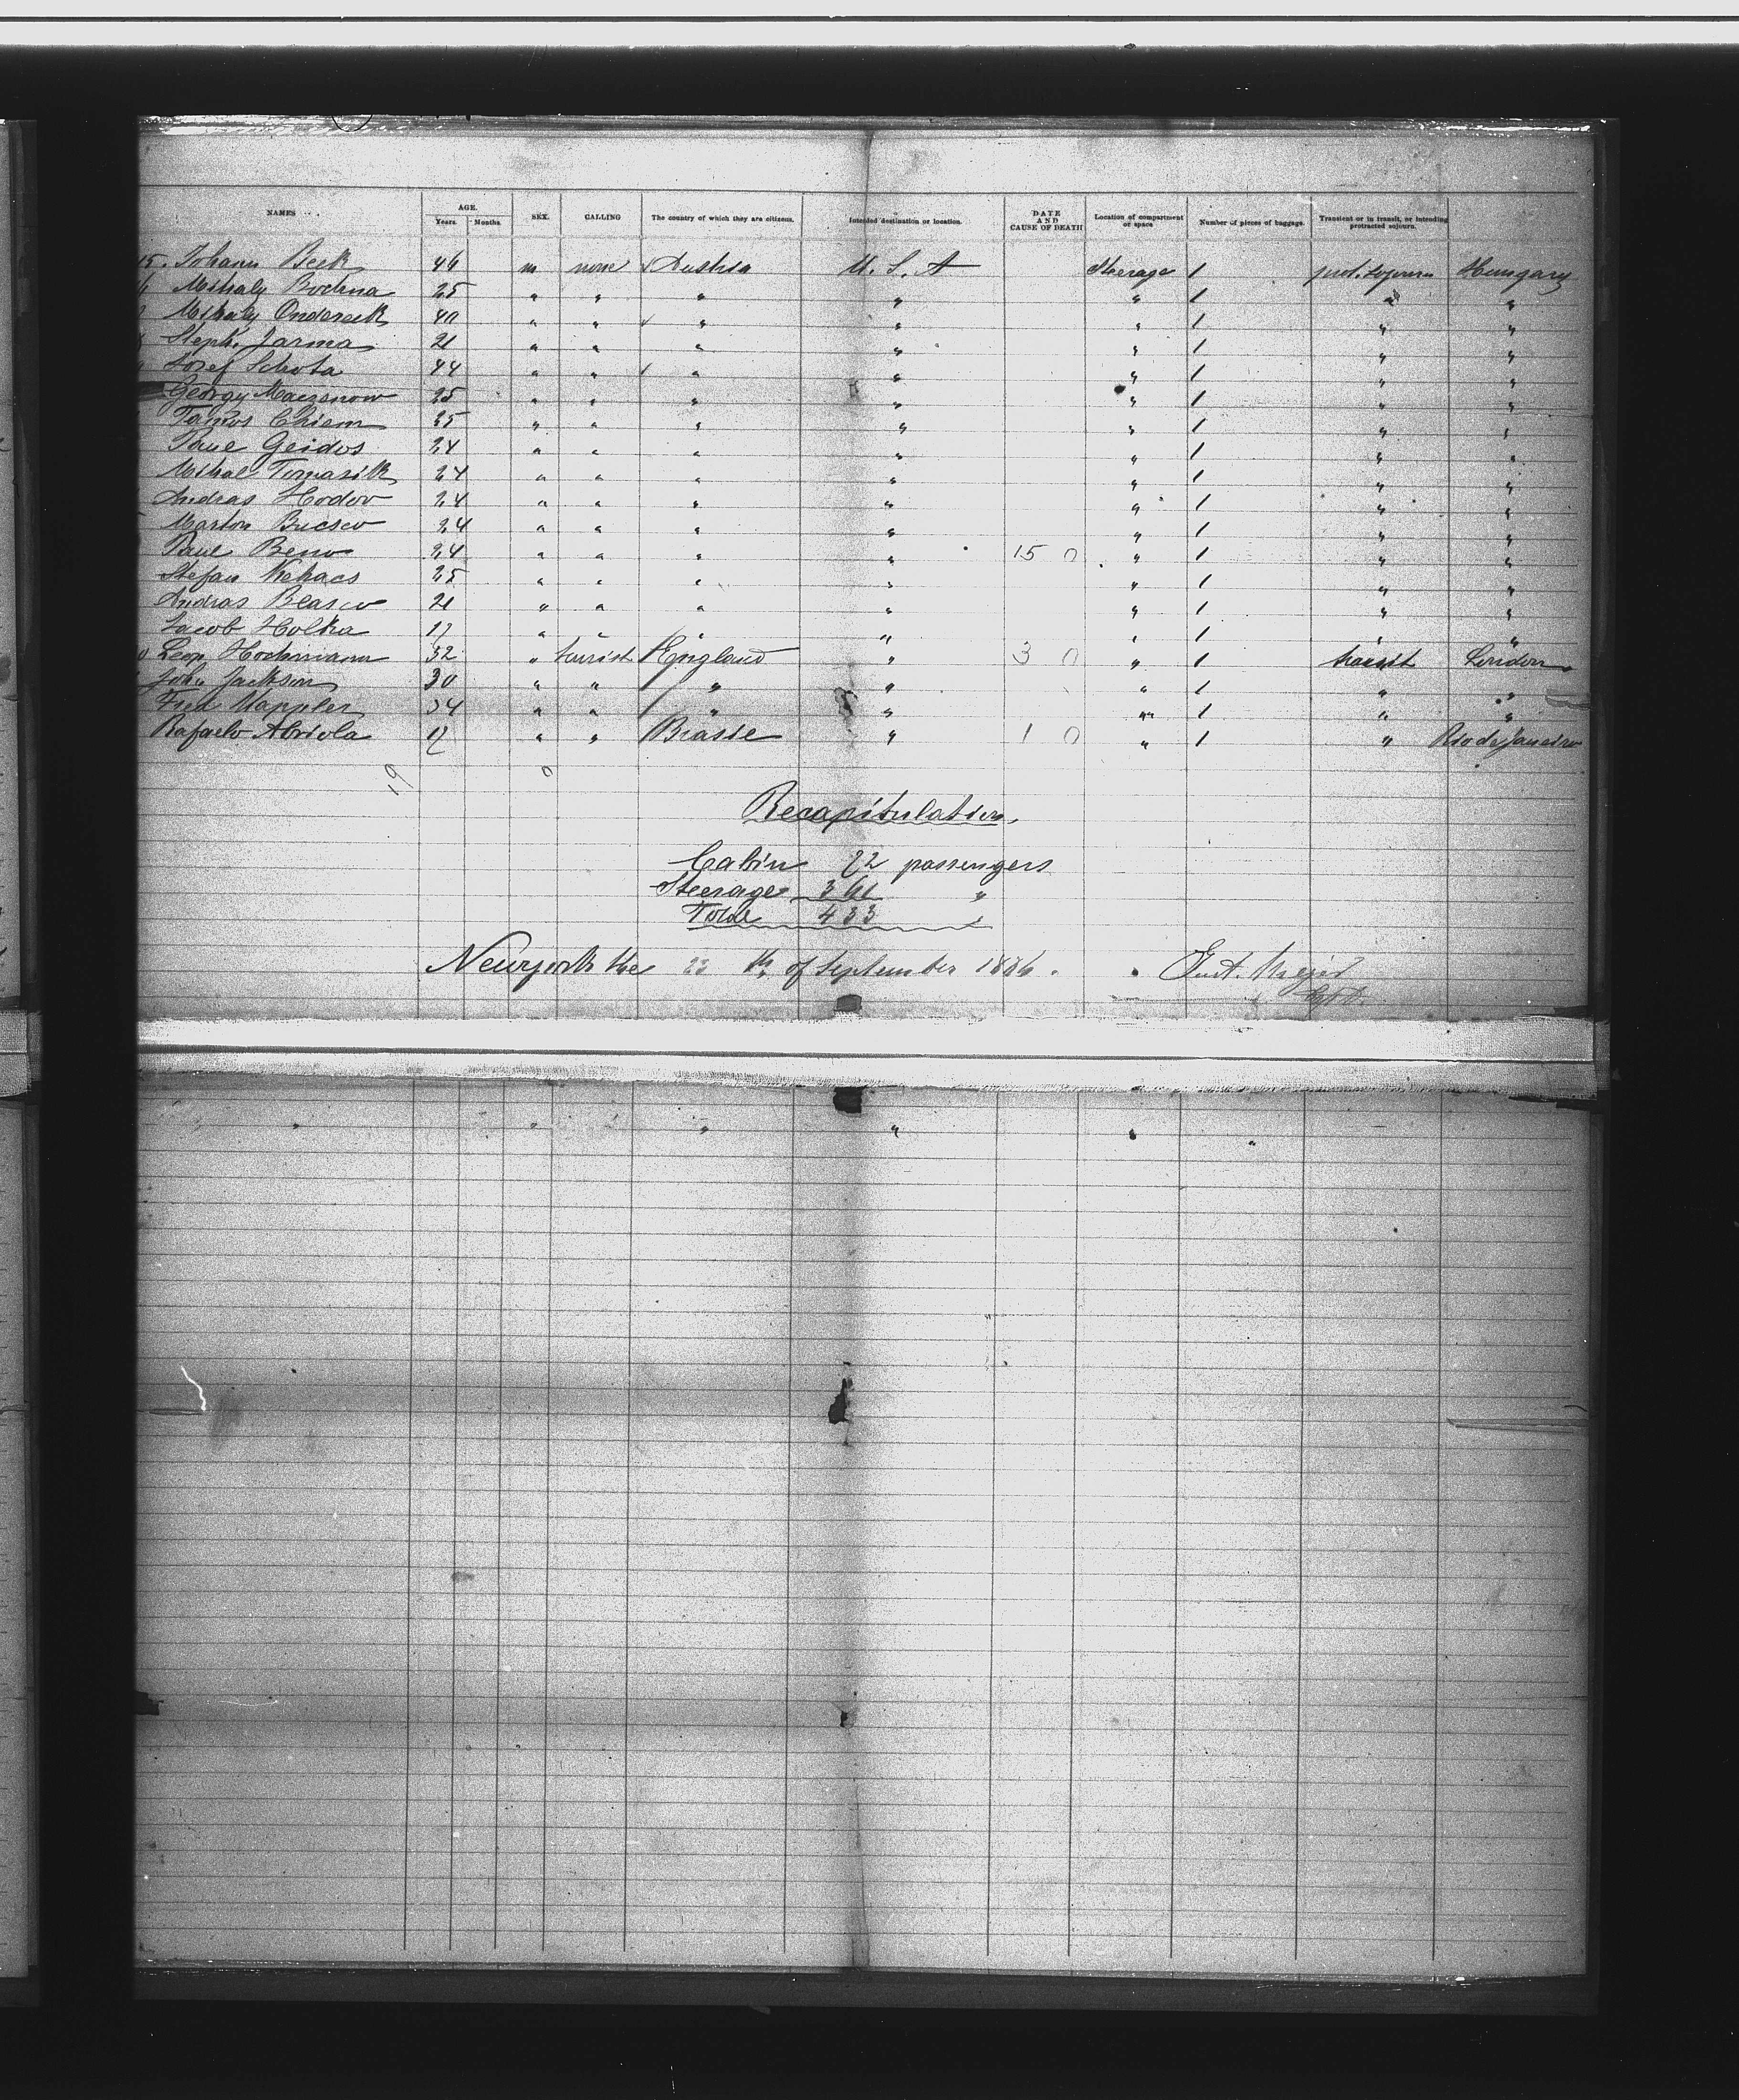 NAMES AGE. Years. Months. SEX. CALLING The country of which they are citizens. Intended destination or location. DATE AND CAUSE OF DEATH Location of compartment or space Number of pieces of baggage. Transient or in transit, or intending protracted sojourn.
15. Johann Beck 46 m none Austria U. S. A Steerage 1 prot. sojourn Hungary
Mihaly Bochna 25 " " " " " 1 " "
Mihaly Ondereck 40 " " " " " 1 " "
Steph. Jarma 21 " " " " " 1 " "
Josef Schota 44 " " " " " 1 " "
Georgy Maczanow 25 " " " " " 1 " "
Chiem 25 " " " " " 1 " "
Paul Geidos 24 " " " " " 1 " "
Mihal Tomasik 24 " " " " " 1 " "
Andras Hodov 24 " " " " " 1 " "
Marton Bucsco 24 " " " " " 1 " "
Paul Beno 24 " " " " 15 0 " 1 " "
Stefan 25 " " " " " 1 " "
Andras Blasco 21 " " " " " 1 " "
Jacob Holka 17 " " " " " 1 " "
0 Leop. Hochmann 32 " tourist England " 3 0 " 1 transit London
John Jackson 30 " " " " " 1 " "
Fred Mappler 34 " " " " " 1 " "
Rafaelo Abriola " " Brasil " 1 0 " 1 " Rio de Janeiro
19 0
Recapitulation.
Cabin 72 passengers
Steerage 361 "
Total 433 "
Newyork the 23 th. of September 1886.